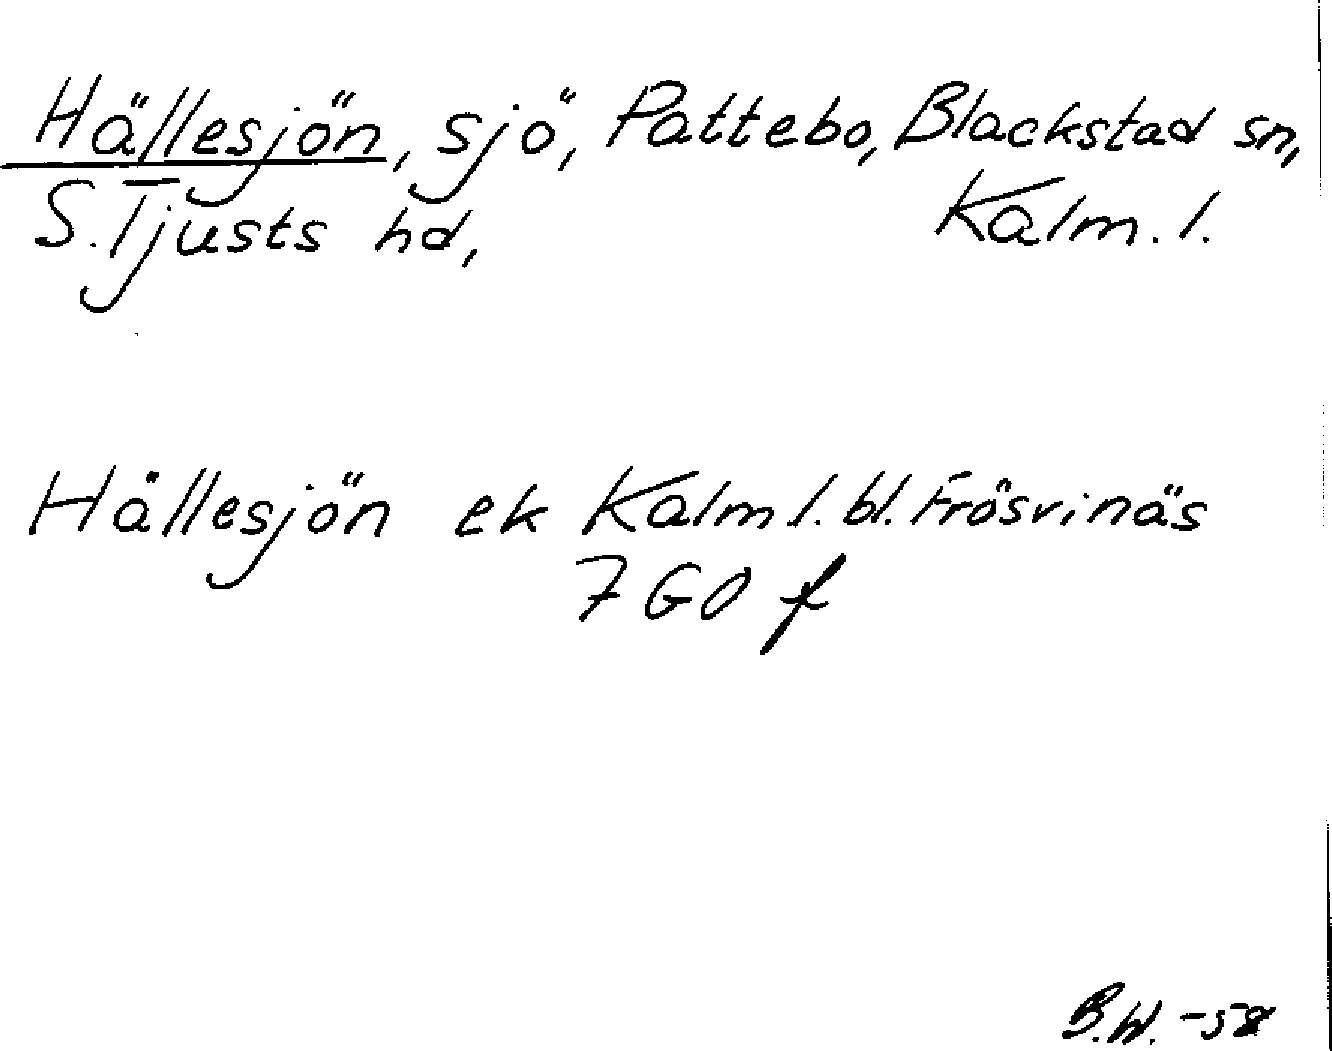 Hällesjön, sjö, Pattebo, Blackstad sn,
S. Tjusts hd, Kalm. l.
Hällesjön ek Kalm l. bl. Frösvinäs
7 GO f
B.W. -58